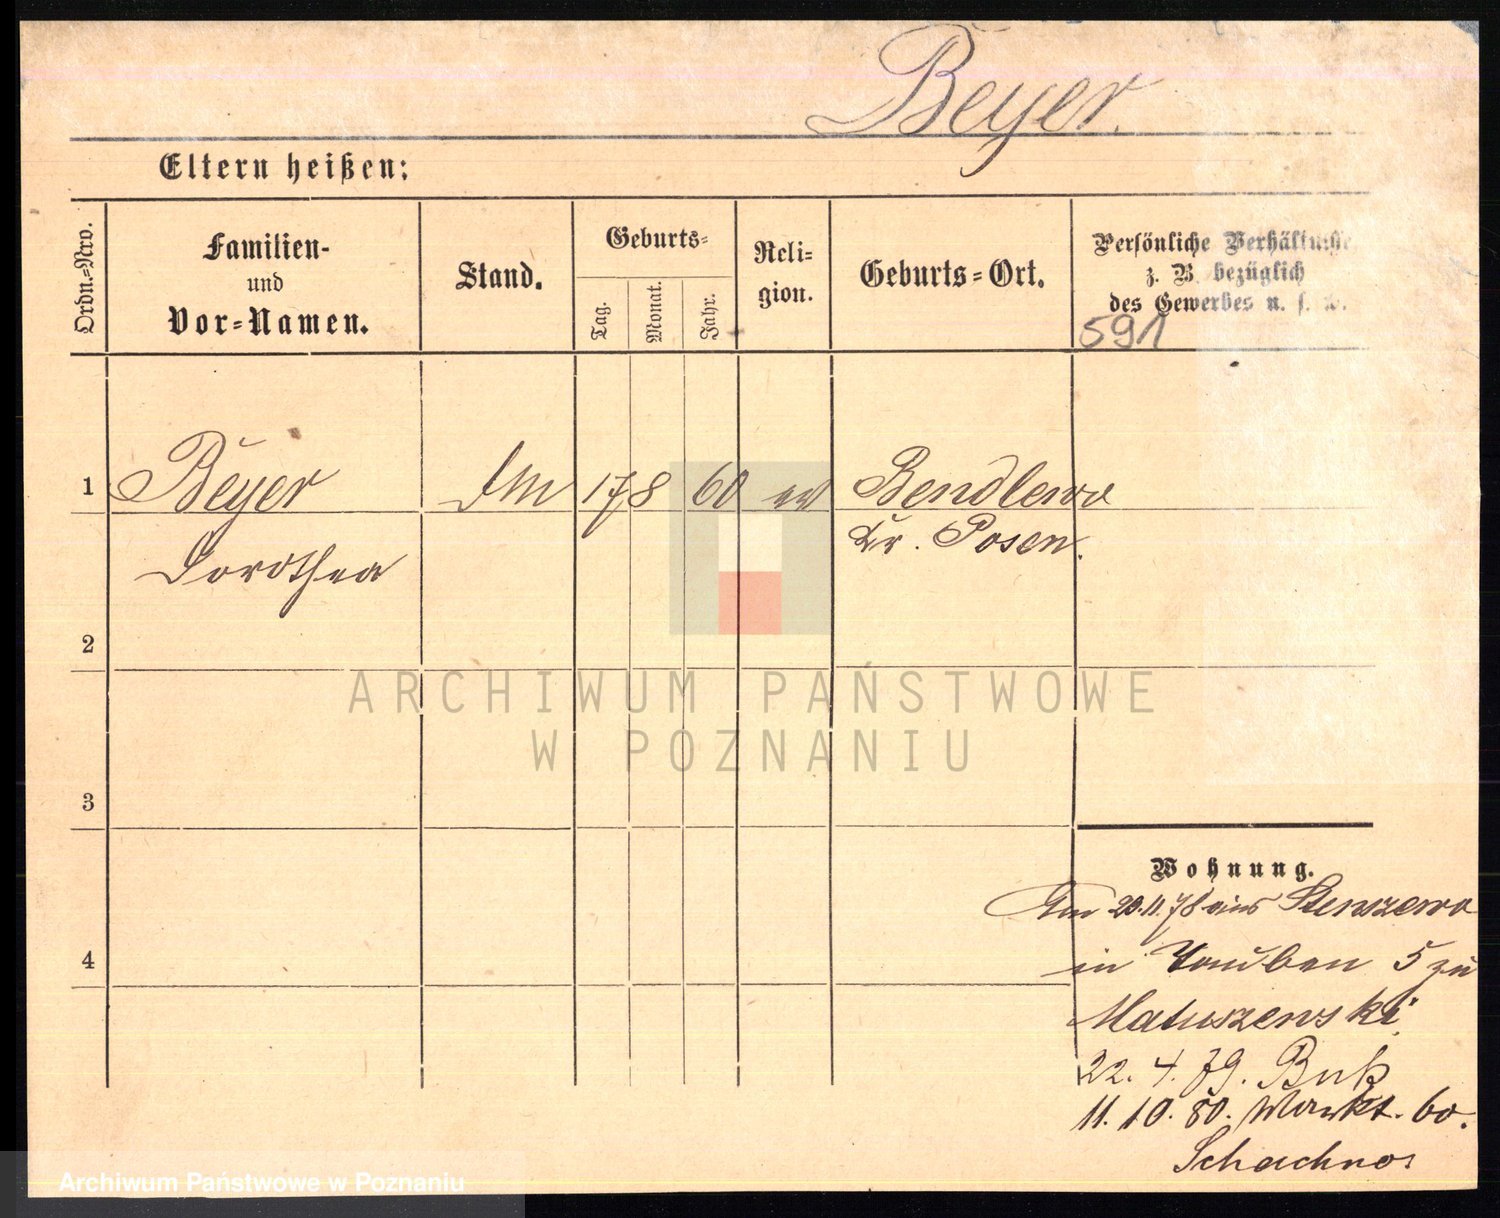 Beyer.
Eltern heißen:
Ordn.=Nro.
Familien-
und
Vor=Namen.
Stand.
Geburts=
Tag.
Monat.
Jahr.
Reli=
gion.
Geburts=Ort.
Persönliche Verhältnisse
z. B. bezüglich
des Gewerbes u. s. w.
591
1
Beyer
17 8 60 ev
Bendlewo
Dorothea
Kr. Posen.
2
ARCHIWUM PAŃSTWOWE
W POZNANIU
3
Wohnung.
20.11.78 aus Stenszewo
4
in Tauben 5 zu
Matuszewski
22. 4. 79. Buk
11. 10. 80. Markt. 60.
Archiwum Państwowe w Poznaniu